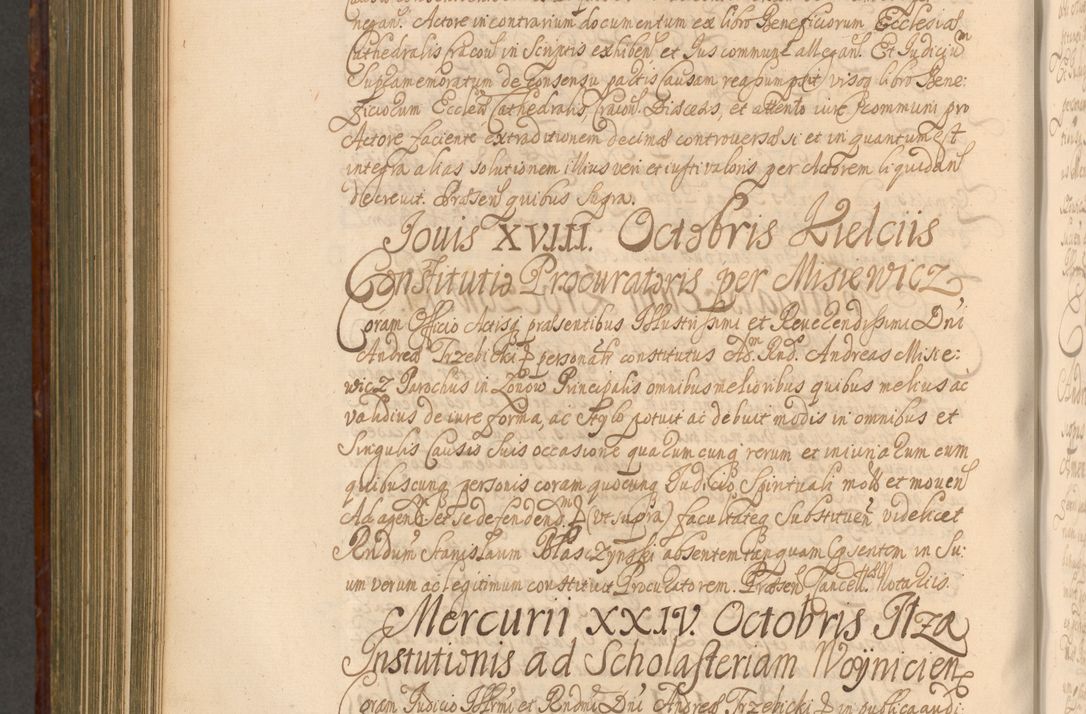 negan. Actore in contrarium documentum ex libro Beneficiorum Ecclesiae
Cathedralis Cracou in Scriptis exhiben et Jus commune allegan. Et Judiciu
Supramemoratum de Consensu partis causam reassumpsit visoq libro Bene:
ficiorum Eccleae Cathedralis Cracou. Diaeces, et attento iure communi pro
Actore faciente extraditionem decimae controversae si et in quantum est
integra alias solutionem illius veri et iusti valoris per Actorem liquidan
decreuit. Praesen quibus supra.
Jouis XVIII. Octobris Kielciis
Constitutio Procuratoris per Misiewicz
Coram Officio Actisq praesentibus Illustrissimi et Reuerendissimi Dni
Andreae Trzebicki E personalr constitutus Ad. Rnd. Andreas Misie:
wicz Parochus in Zonow Principalis omnibus melioribus quibus melius ac
validius de iure forma, ac stylo potuit ac debuit modis in omnibus et
singulis causis suis occasione quarumcunq rerum et iniuriarum cum
quibuscunq personis coram quocunq Judicio Spirituali motis et mouen
Ad agend et se defendend (ut supra) facultateq substituen videlicet
Rndum Stanislaum Błaszczynski absentem tanquam psentem in su:
um verum ac legitimum constituit Procuratorem. Praesen Cancell. Notariis.
Mercurii XXIV. Octobris Ilza
Instutionis ad Scholasteriam Woynicien
Coram Judicio Illrmi et Rndmi Dni Andreae Trzebicki E in publica audi: